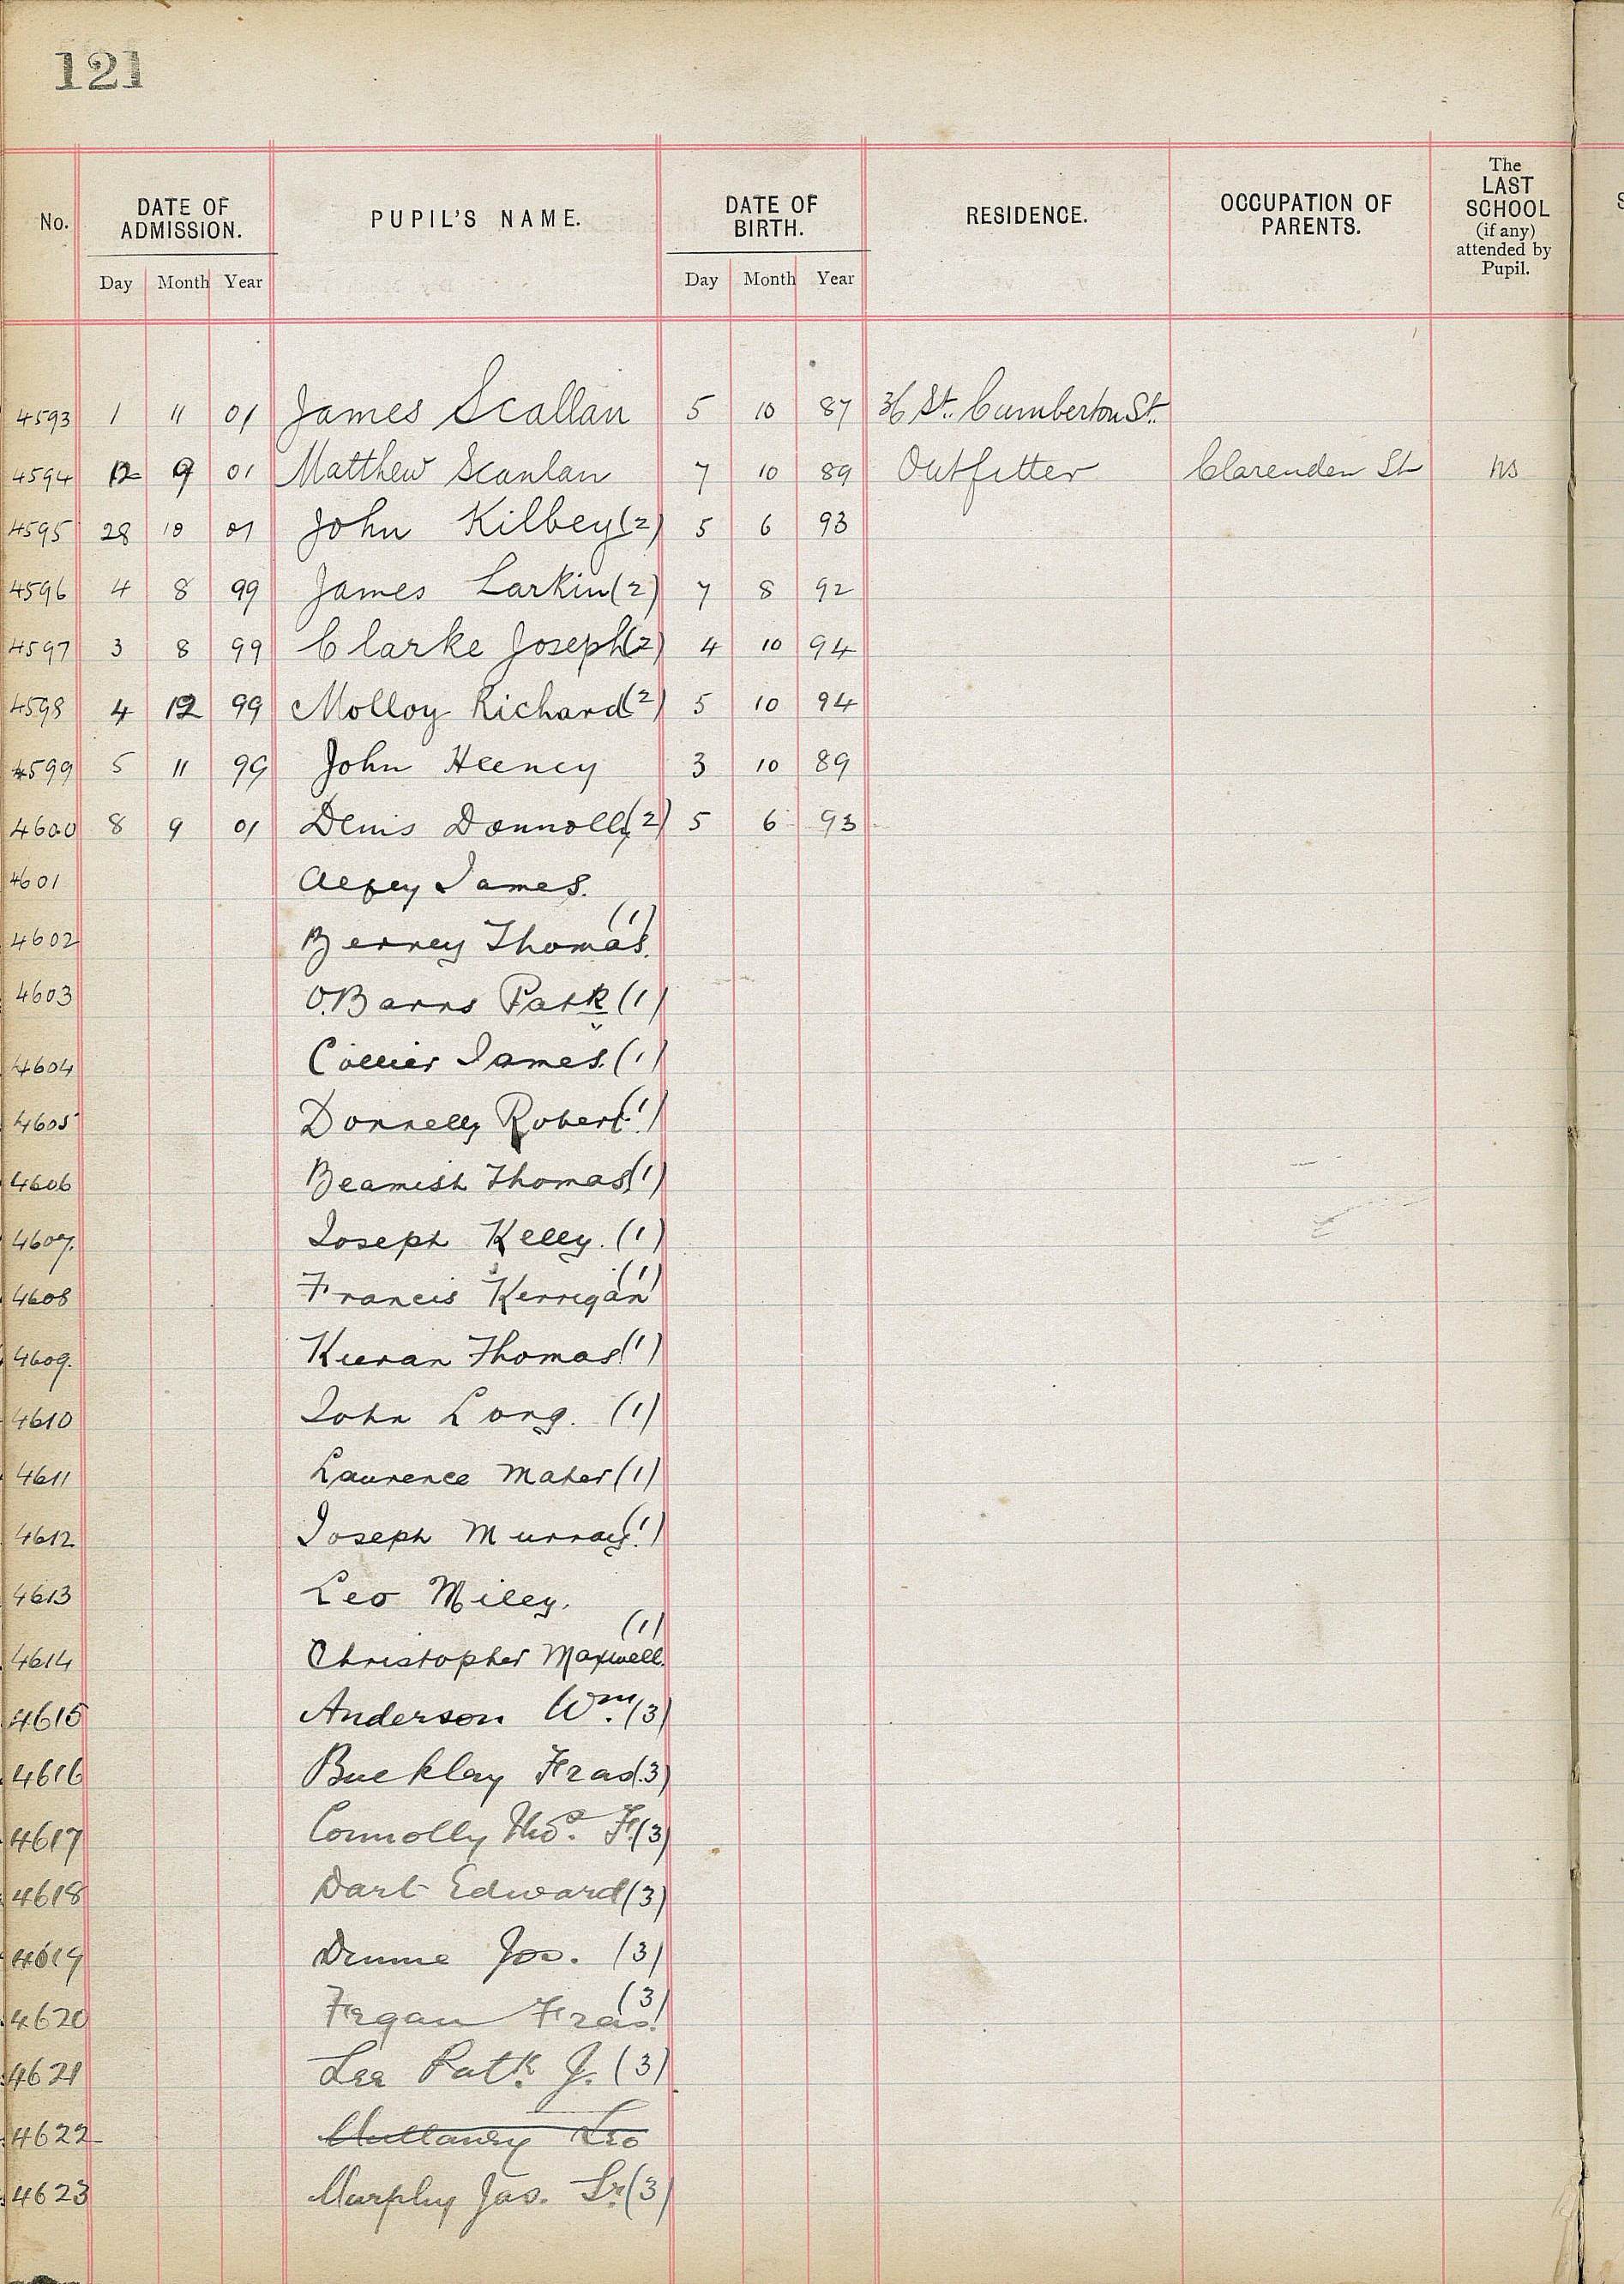 121
No. DATE OF ADMISSION. PUPIL'S NAME. DATE OF BIRTH. RESIDENCE. OCCUPATION OF PARENTS. The LAST SCHOOL (if any) attended by Pupil.
Day Month Year Day Month Year
4593 1 11 01 James Scallan 5 10 87 36 St. Cumberton St.
4594 12 9 01 Matthew Scanlan 7 10 89 Outfitter Clarenden St NS
4595 28 10 01 John Kilbey (2) 5 6 93
4596 4 8 99 James Larkin (2) 7 8 92
4597 3 8 99 Clarke Joseph (2) 4 10 94
4598 4 12 99 Molloy Richard (2) 5 10 94
4599 5 11 99 John Heeney 3 10 89
4600 8 9 01 Denis Donnolly (2) 5 6 93
4601 James.
4602 Berney Thomas. (1)
4603 O.Barns Patk (1)
4604 Collier James. (1)
4605 Donnelly Robert. (1)
4606 Beamish Thomas (1)
4607. Joseph Kelly. (1)
4608 Francis Kerrigan (1)
4609. Kieran Thomas (1)
4610 John Long. (1)
4611 Laurence Maher (1)
4612 Joseph Murray. (1)
4613 Leo Miley.
4614 Christopher Maxwell. (1)
4615 Anderson Wm. (3)
4616 Buckley Fras. (3)
4617 Connolly Thos. F. (3)
4618 Dart Edward (3)
4619 Dunne Jos. (3)
4620 Fegan Fras. (3)
4621 Lee Patk. J. (3)
4622 Mullaney Leo
4623 Murphy Jas. Sr. (3)